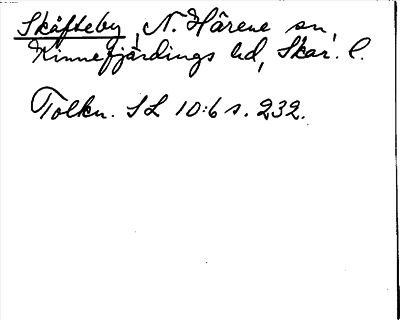 Skåfteby, N. Härene sn,
Kinnefjärdings hd, Skar. l.
Tolkn. SL 10:6 s. 232.